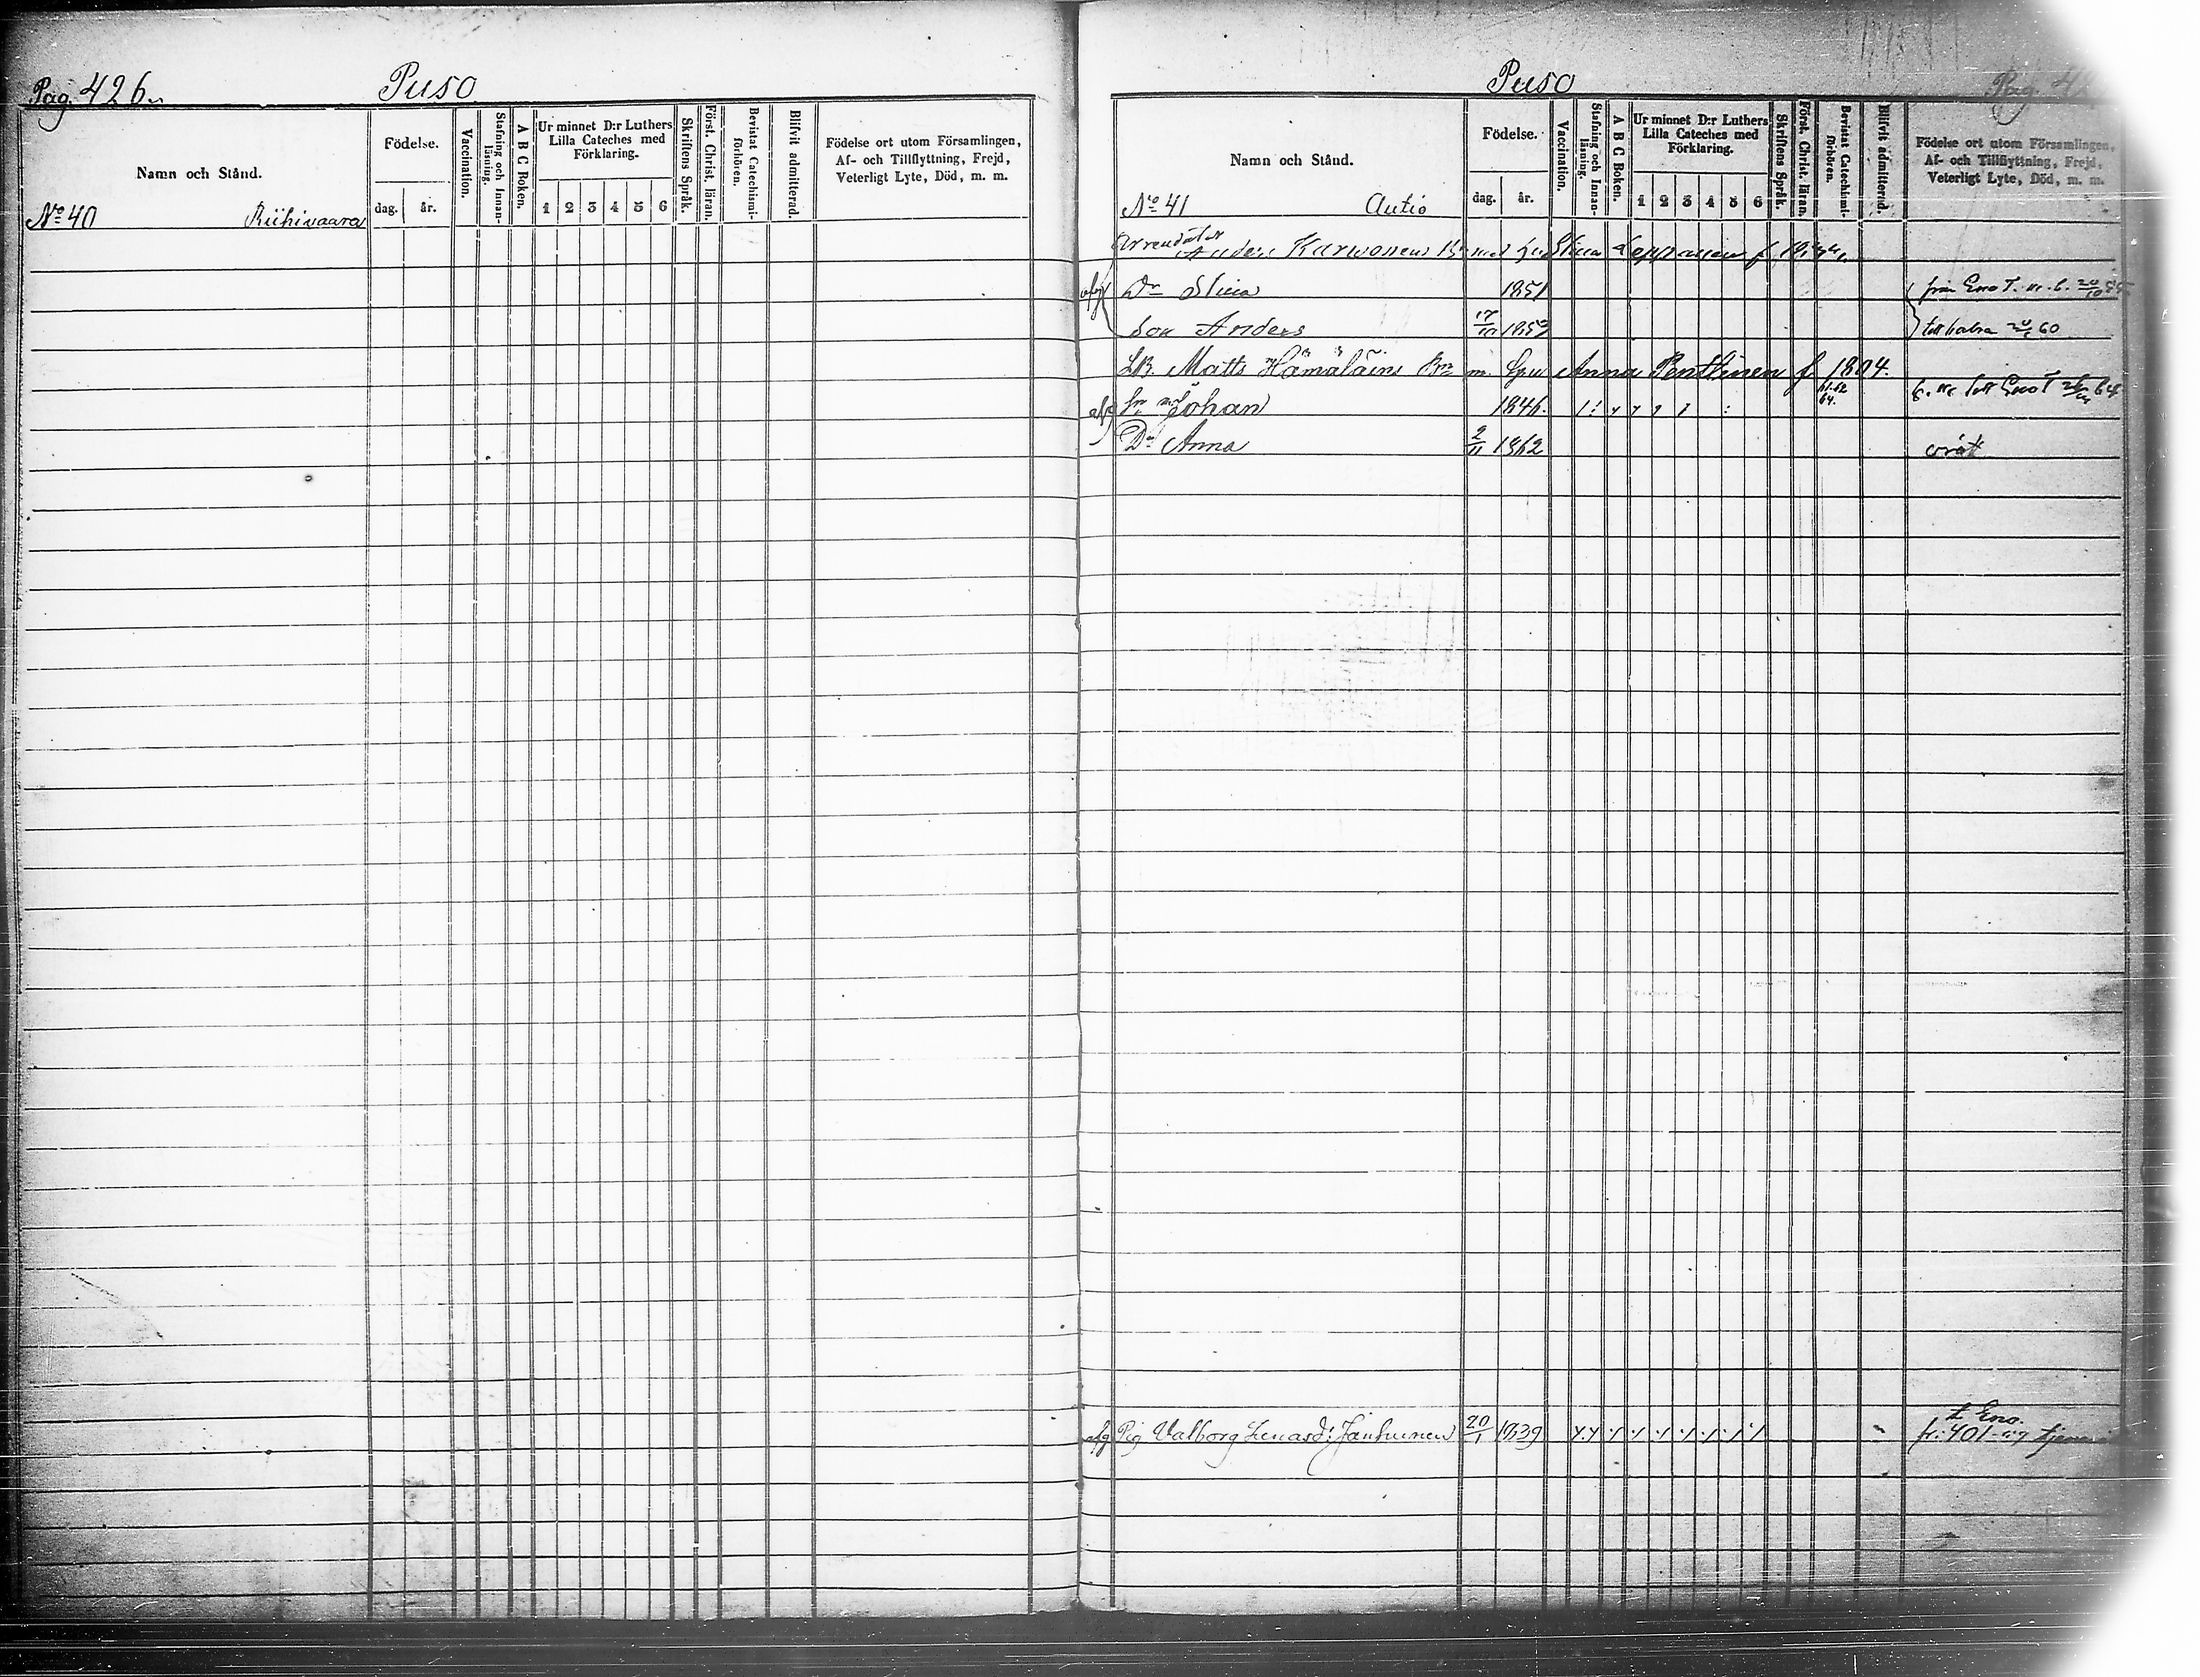 Pag. 426.
Puso
Namn och Stånd.
Födelse.
dag. år.
Vaccination.
Stafning och Innanläsning.
A B C Boken.
Ur minnet D:r Luthers
Lilla Cateches med
Förklaring.
1 2 3 4 5 6
Skriftens Språk.
Först. Christ. läran.
Bevistat Catechismiförhören.
Blifvit admitterad.
Födelse ort utom Församlingen,
Af- och Tillflyttning, Frejd,
Veterligt Lyte, Död, m. m.
No 40 Riihivaara
Puso
Pag.
Namn och Stånd.
Födelse.
dag. år.
Vaccination.
Stafning och Innanläsning.
A B C Boken.
Ur minnet D:r Luthers
Lilla Cateches med
Förklaring.
1 2 3 4 5 6
Skriftens Språk.
Först. Christ. läran.
Bevistat Catechismiförhören.
Blifvit admitterad.
Födelse ort utom Församlingen,
Af- och Tillflyttning, Frejd,
Veterligt Lyte, Död, m. m.
No 41 Autio
Arrendator
Anders Karwonen Stina Leppänen f
Dr Stina 1851 från Eno
Son Anders 17/10 1857 60
LB. Matts Hämäläins m. Anna Penttinen f 1804.
Johan 1846. 61.62 64. till Eno 64
Dr Anna 2/11 1862
t. Eno.
afg Pig Valborg Lenasd: Janhunen 20/1 1839 fr: 401